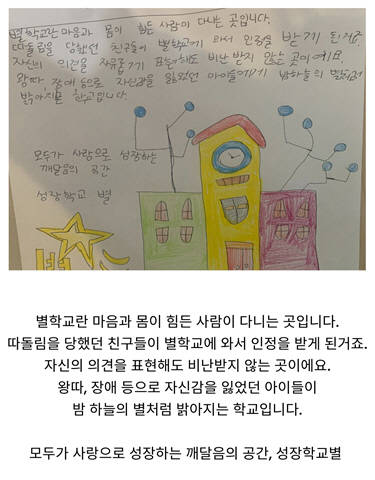 별학교란 마음과 몸이 힘든 사람이 다니는 곳입니다.
따돌림을 당했던 친구들이 별학교에 와서 인정을 받게 된거죠.
자신의 의견을 자유롭게 표현해도 비난받지 않는 곳이에요.
왕따, 장애 등으로 자신감을 잃었던 아이들이 밤하늘의 별처럼
밝아지는 학교입니다.
모두가 사랑으로 성장하는
깨달음의 공간
성장학교 별
별
별학교란 마음과 몸이 힘든 사람이 다니는 곳입니다.
따돌림을 당했던 친구들이 별학교에 와서 인정을 받게 된거죠.
자신의 의견을 표현해도 비난받지 않는 곳이에요.
왕따, 장애 등으로 자신감을 잃었던 아이들이
밤 하늘의 별처럼 밝아지는 학교입니다.
모두가 사랑으로 성장하는 깨달음의 공간, 성장학교별